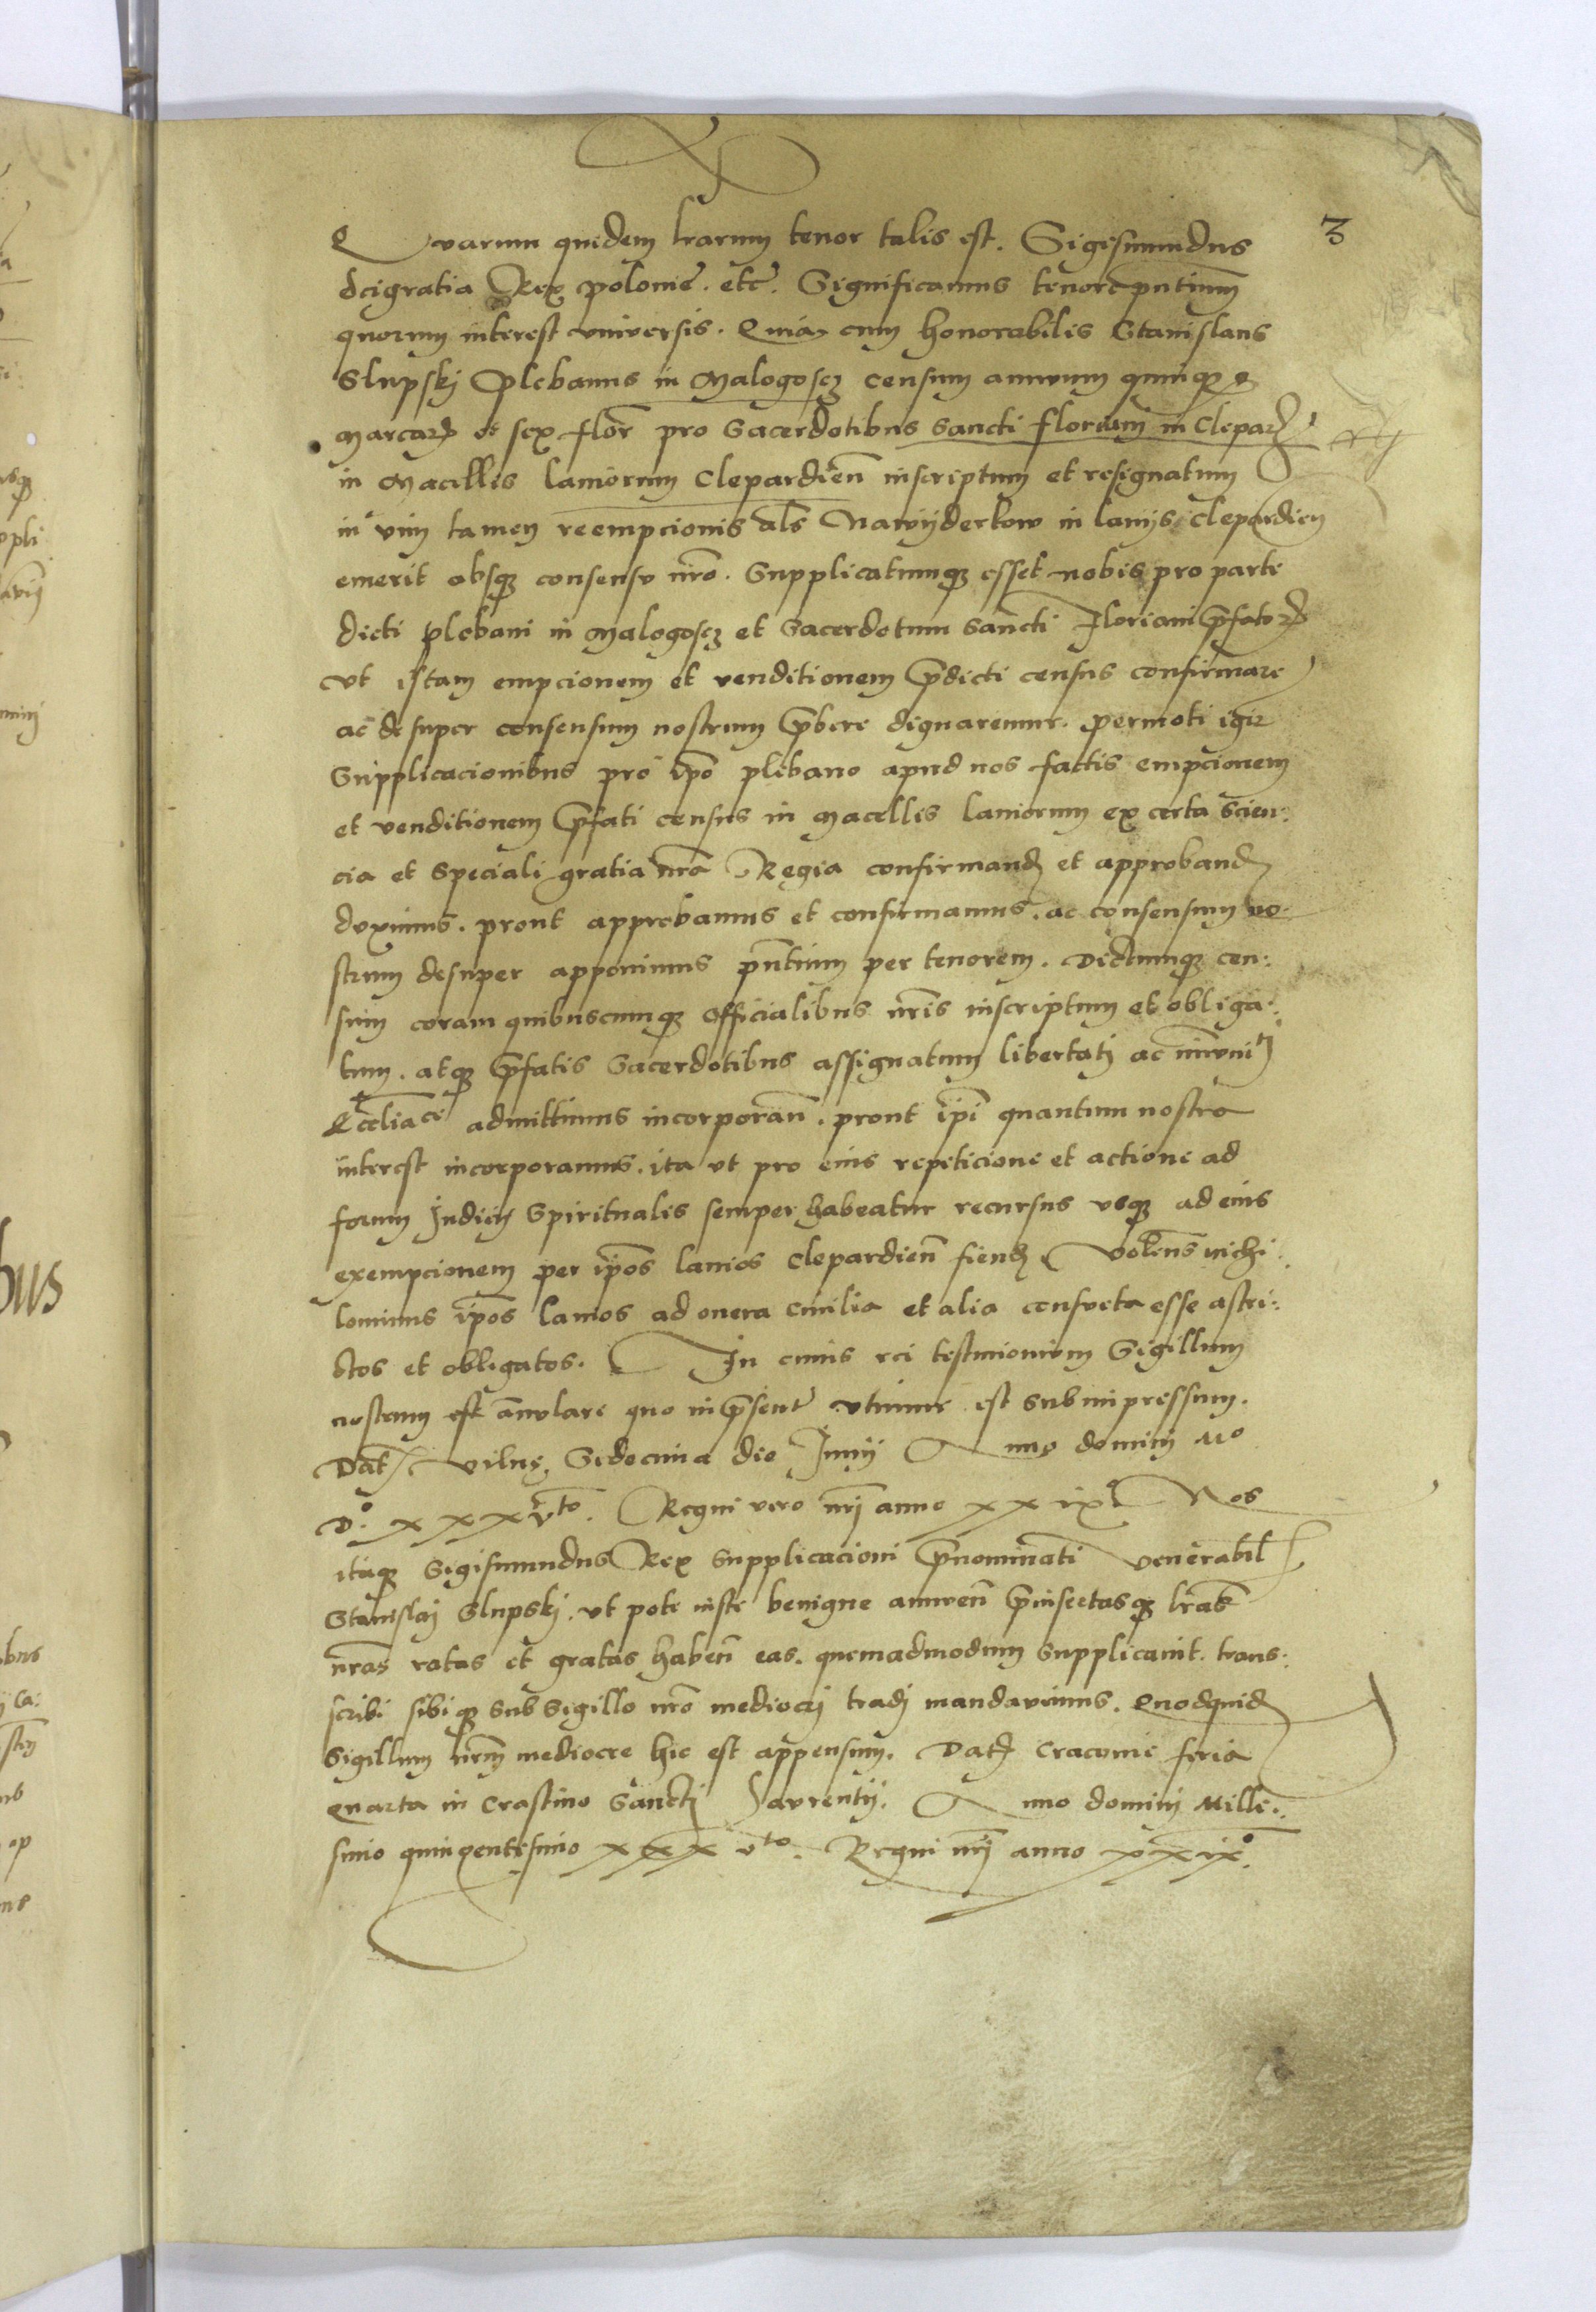 3
Quarum quidem lrarum tenor talis est. Sigismundus
dei gratia Rex polonie. etc. Significamus tenore pntium
quorum interest vniversis. Quia cum honorabilis Stanislaus
Slupskj Plebanus in Malogoscz censum annuum quinqz
Marcarum et sex flor pro Sacerdotibus sancti floriani in Clepar
in Macellis laniorum Clepardien inscriptum et resignatum
in vim tamen reempcionis als Nawyderkow in lanijs Clepardien
emerit absqz consensu nro. Supplicatumqz esset nobis pro parte
dicti plebani in Malogoscz et Sacerdotum sancti Floriani pfatorum
vt istam empcionem et venditionem pdicti census confirmare
ac desuper consensum nostrum pbere dignaremur. permoti igir
Supplicacionibus pro ipo plebano apud nos factis empcionem
et venditionem pfati census in Macellis laniorum ex certa scien:
cia et speciali gratia nra Regia confirmand et approband
duximus. prout approbamus et confirmamus. ac consensum no-
strum desuper apponimus pntium per tenorem. Dictumqz cen:
sum coram quibuscumqz officialibus nris inscriptum et obliga:
tum. atqz pfatis Sacerdotibus assignatum libertatj ac
admittimus incorporan. prout ipi quantum nostra
interest incorporamus. ita vt pro eius repeticione et actione ad
forum Judicij Spiritualis semper habeatur recursus vsqz ad eius
exempcionem per ipos lanios Clepardien fiend volens nichi:
lominus ipos lanios ad onera civilia et alia consueta esse astri:
ctos et obligatos. In cuius rei testimonium Sigillum
nostrum est anulare quo in psent vtimur est subimpressum.
Dat vilne. die Junij Anno dominj Mo
Do. xxxvto. Regni vero nrj anno xxixo Nos
itaqz Sigismundus Rex supplicacioni pnominati venerabil
Stanislaj Slupskj. vt pote iuste benigne annuen pinsertasqz lras
nras ratas et gratas haben eas. quemadmodum supplicavit. trans:
scribi sibiqz sub sigillo nro mediocrj tradj mandavimus. Quodquid
Sigillum nrm mediocre hic est appensum. Dat Cracovie feria
quarta in Crastino sanctj Laurentij. Anno dominj Mille:
simo quingentesimo xxxvto. Regni nrj anno xxixo.